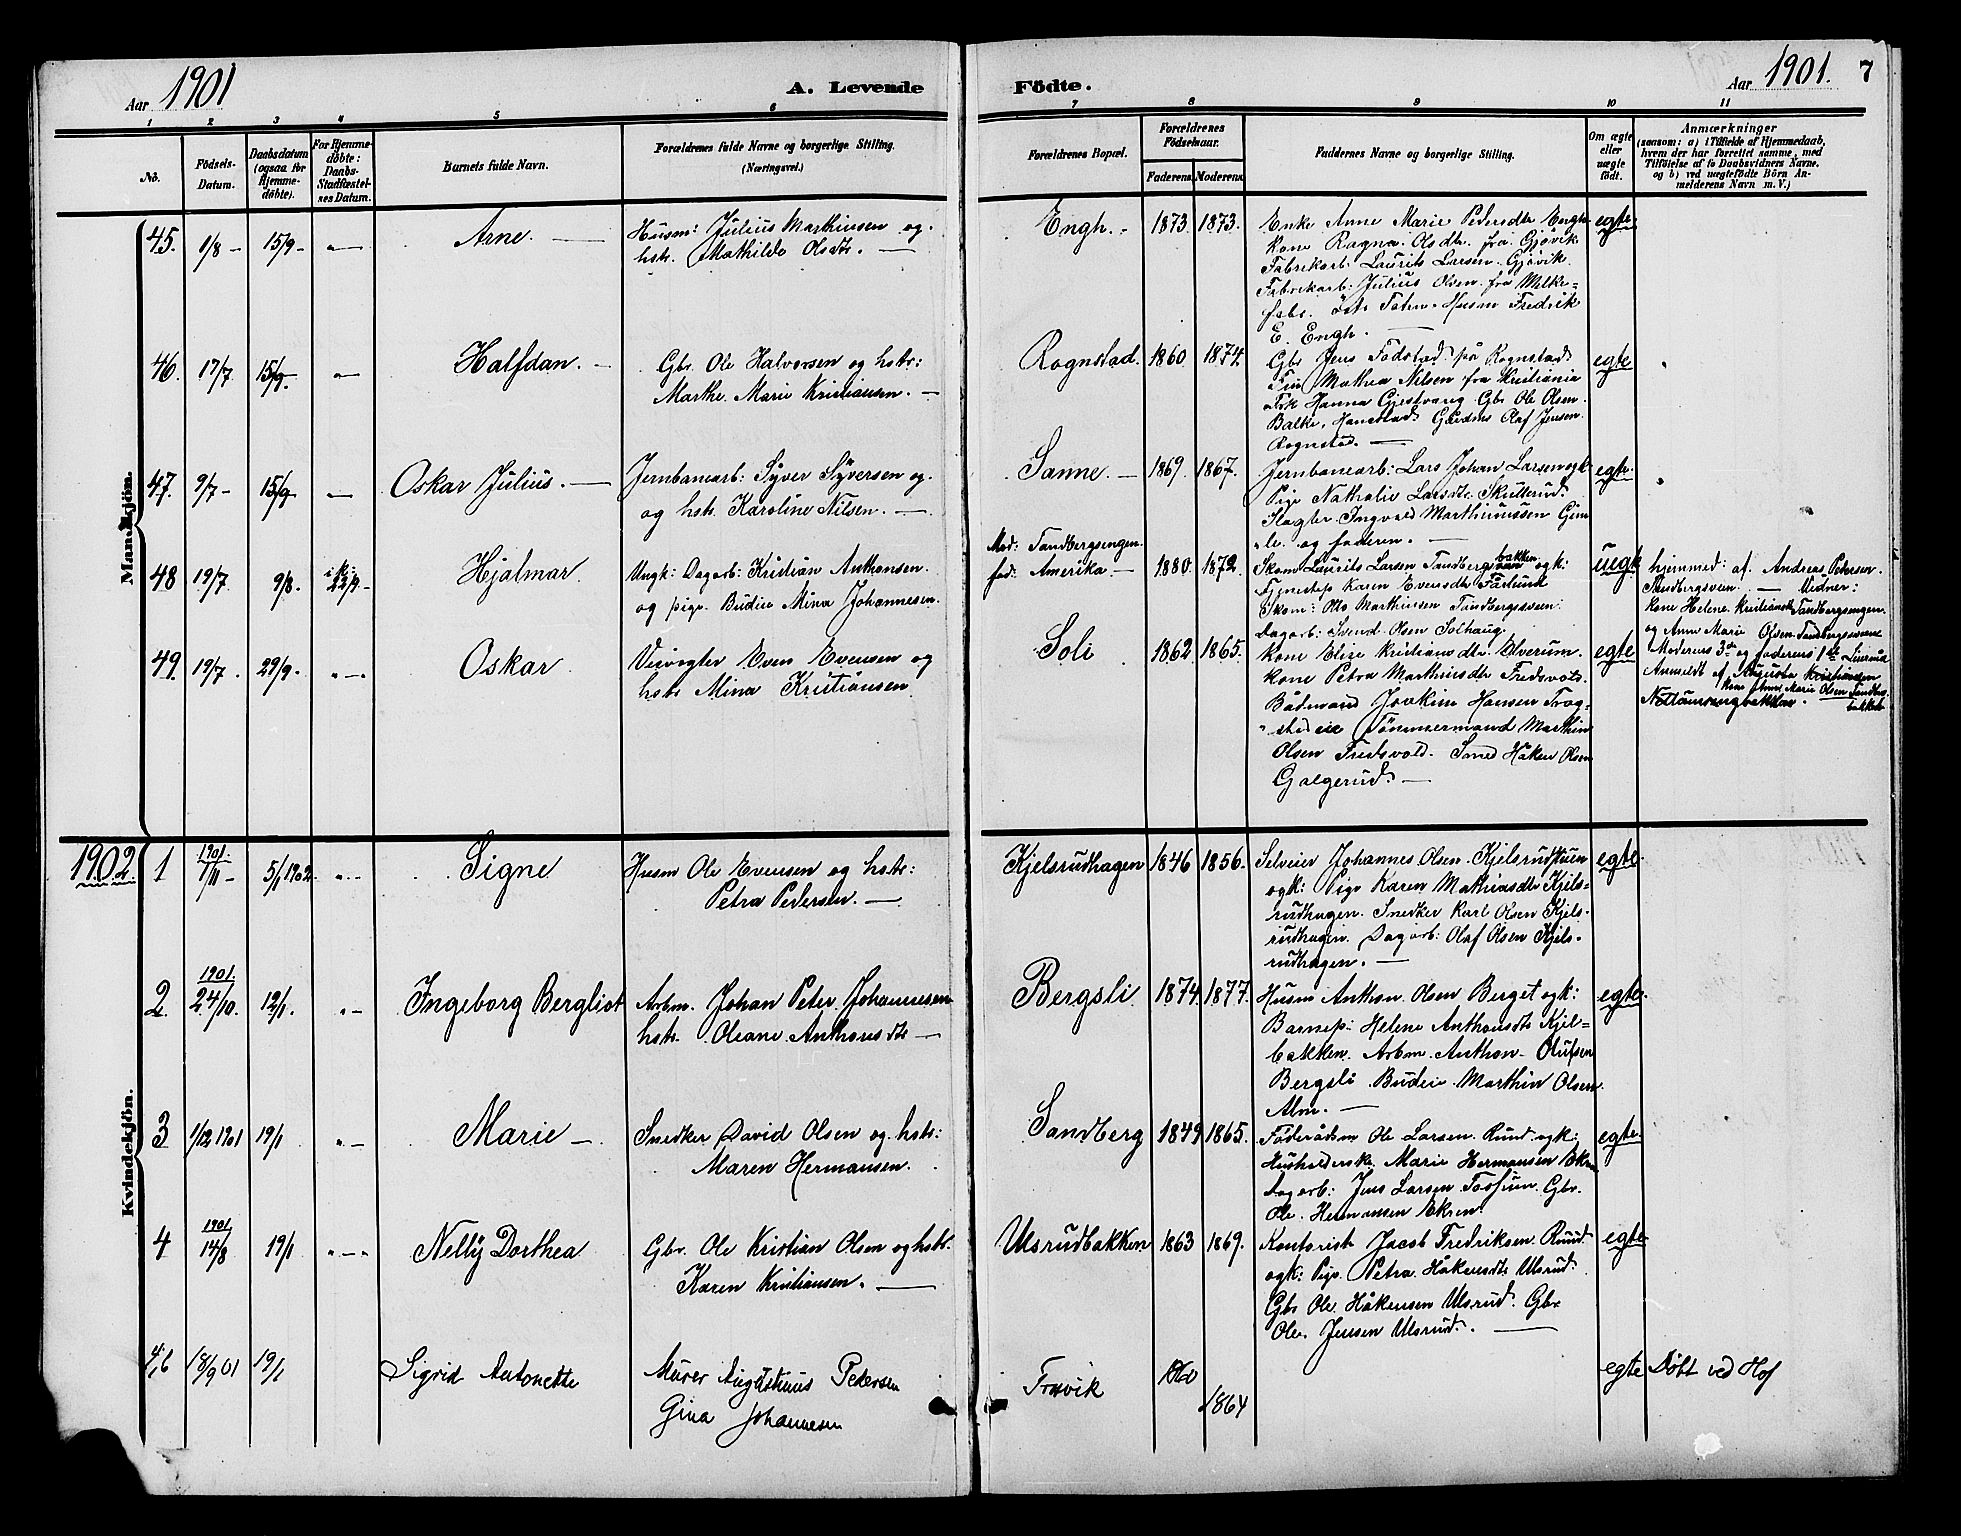 Aar 1901
A. Levende
Födte.
Aar 1901. 7
1 2 3 4 5 6 7 8 9 10 11
No.
Födsels-Datum.
Daabsdatum (ogsaa for Hjemmedöbte).
For Hjemmedöbte: Daabs-Stadfæstelses Datum.
Barnets fulde Navn.
Forældrenes fulde Navne og borgerlige Stilling.
(Næringsvei.)
Forældrenes Bopæl.
Forældrenes Födselsaar.
Faderens. Moderens.
Faddernes Navne og borgerlige Stilling.
Om ægte eller uægte födt.
Anmærkninger
(saasom: a) i Tilfælde af Hjemmedaab,
hvem der har forrettet samme, med
Tilföielse af to Daabsvidners Navne.
og b) ved uægtefödte Börn Anmelderens Navn m. V.)
Mandkjön.
45. 1/8 - 15/9 - Arne. Husm: Julius Marthinsen og
hstr. Mathilde Olsdtr.
Engh. 1873 1873.
Enke Anne Marie Pedersdtr Engh
kone Ragna Olsdtr. fra Gjövik
Fabrikarb: Laurits Larsen Gjövik
Fabrikarb: Julius Olsen fra Melke-
fabr. östr Toten. Husm Fredrik
E. Engh.
egte
46. 17/7 15/9. Halfdan. Gbr. Ole Halvorsen og hstr:
Marthe Marie Kristiansen.
Rognstad. 1860 1874.
Gbr Jens Fodstad fra Rognstad
Mathea Nilsen fra Kristiania
Frk Hanna Gjestvang Gbr Ole Olsen
Balke, Olaf Jensen
Rognstad.
egte
47. 9/7 - 15/9 Oskar Julius. Jernbanearb: Syver Syversen og
og hstr. Karoline Nilsen.
Sanne. 1869. 1867.
Jernbanearb: Lars Johan Larsen ogk
Pige Nathalie Larsdtr. Skullerud
Slagter Ingvald Marthinussen
og faderen.
egte
48 19/7 9/8. i k: 22/9 Hjalmar Ungk: Dagarb: Kristian Anthonsen
og pige Budeie Mina Johannesen.
Mod: Sandbergsengen.
fad: Amerika. 1880. 1872.
Skom Laurits Larsen Sandbergbakken ogk:
Tjenestep. Karen Evensdtr Farlund
Skom: Otto Marthinsen Sandbergsveen.
Dagarb: Svend Olsen Solhaug.
uegte
hjemmed: af Andreas Petersen
Sandbergsveen. Vidner:
kone Helene Kristiansdtr Sandbergsengen
og Anne Marie Olsen Sandbergsveen
Moderens 3die og faderens 1ste
Anmeldt af Auguste Kristiansen
kone Anne Marie Olsen Sandbergbakken
49. 19/7. 29/9. Oskar. Veivogter Even Evensen og
hstr Mina Kristiansen
Soli 1862 1865.
Kone Elise Kristiansdtr Elverum.
kone Petra Marthinsdtr Fredsvold.
Joakim Hansen Frog-
Tömmermand Marthin
Olsen Fredsvold. Smed Håken Olsen
Galgerud.
egte
1902.
Kvindekjön.
1 1901. 1/11 - 5/1 1902 Signe Husm Ole Evensen og hstr:
Petra Pedersen.
Kjelsrudhagen 1846 1856.
Selveier Johannes Olsen Kjelsrudstuen
ogk: Pige Karen Mathiasdtr Kjels-
rudhagen. Snedker Karl Olsen Kjels-
rudhagen. Dagarb: Olaf Olsen Kjels-
rudhagen.
egte
2. 1901. 24/10. 12/1. Ingeborg Bergliot Arbm. Johan Peter Johannesen
hstr. Oleane Anthonsdtr
Bergsli 1874. 1877.
Husm Anthon Olsen Berget ogk:
Barnep: Helene Anthonsdtr Kjel-
bakken. Arbm. Anthon Olufsen
Bergsli Budeie Marthin Olsen
Alm.
egte.
3 1/12 1901 19/1 Marie Snedker David Olsen og hstr:
Maren Hermansen.
Sandberg 1849 1865.
Föderådsm Ole Larsen Rund ogk:
Husholderske Marie Hermansen Ekren
Dagarb: Jens Larsen Fossum Gbr.
Ole Hermansen Ekren.
egte.
4 1901. 14/8 19/1 Nelly Dorthea Gbr. Ole Kristian Olsen og hstr.
Karen Kristiansen.
Ulsrudbakken 1863 1869.
Kontorist Jacob Fredriksen Ruud
ogk: Pige Petra Håkensdtr Ulsrud
Gbr Ole Håkensen Ulsrud. Gbr
Ole Jensen Ulsrud.
egte
4,6 18/9 01 19/1 Sigrid Antonette Murer Augustinus Pedersen
Gina Johannesen
1860
1864
egte Döbt ved Hof